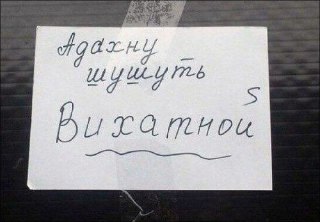 Адахну
шушуть
S
Вихатной